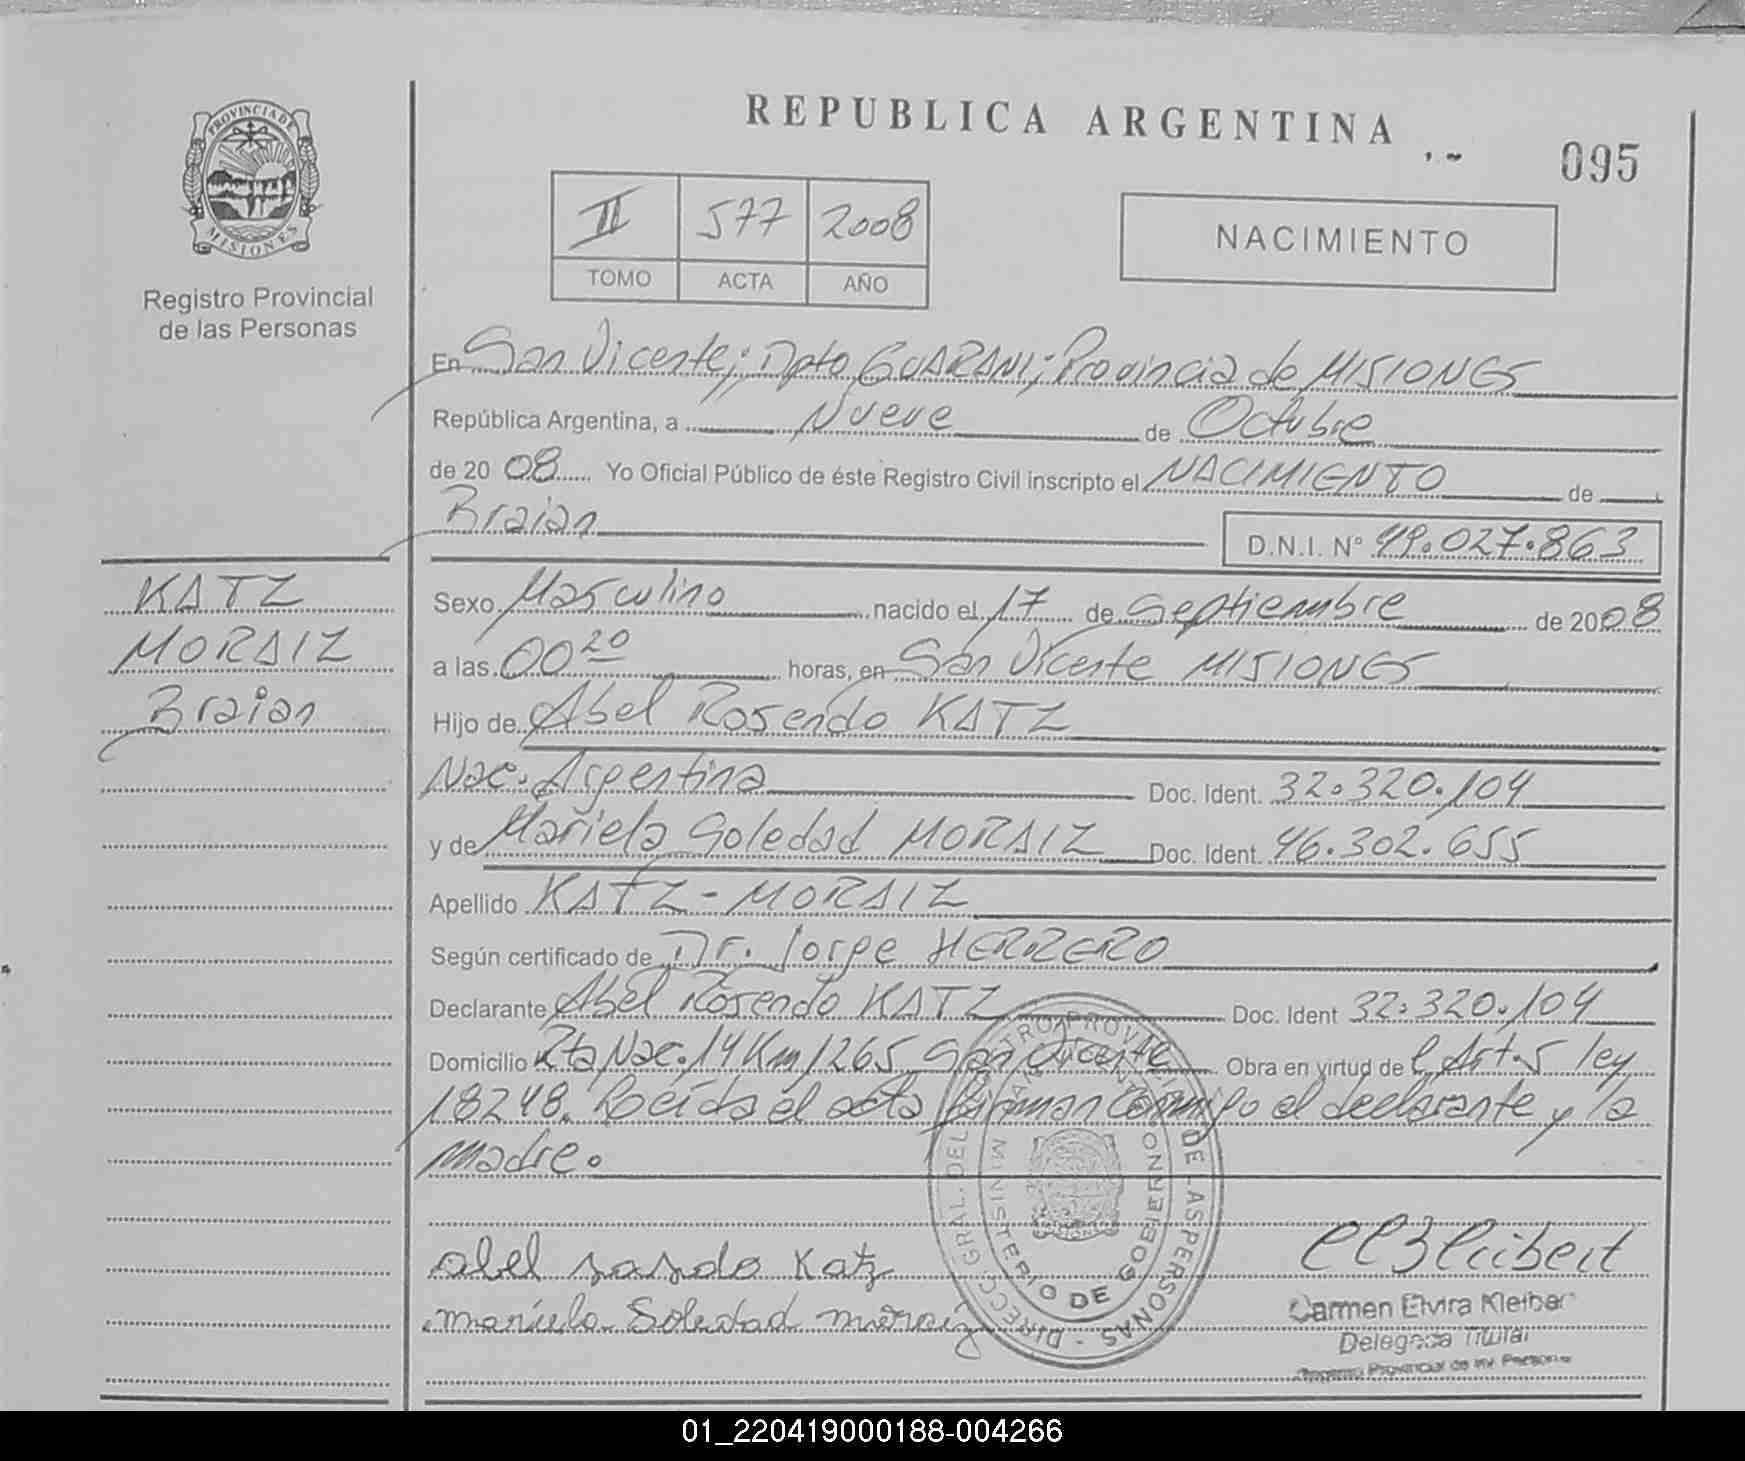 REPUBLICA ARGENTINA
095
PROVINCIA DE
MISIONES
Registro Provincial
de las Personas
II 577 2008
TOMO ACTA AÑO
NACIMIENTO
En San Vicente; Dpto GUARANI; Provincia de MISIONES
República Argentina, a Nueve de Octubre
de 2008 Yo Oficial Público de éste Registro Civil inscripto el NACIMIENTO de
Braian
D.N.I. Nº 49.027.863
KATZ
MORAIZ
Braian
Sexo Masculino nacido el 17 de Septiembre de 2008
a las 00 20 horas, en San Vicente MISIONES
Hijo de Abel Rosendo KATZ
Nac. Argentina Doc. Ident. 32.320.104
y de Mariela Soledad MORAIZ Doc. Ident. 46.302.655
Apellido KATZ - MORAIZ
Según certificado de Dr. Jorge HERRERO
Declarante Abel Rosendo KATZ Doc. Ident 32.320.104
Domicilio Rta Nac. 14 Km 1265 San Vicente Obra en virtud de l Art. 5 ley
18248. Leída el acta firman conmigo el declarante y la
madre.
DIRECC. GRAL. DEL REGISTRO PROVINCIAL DE LAS PERSONAS
MINISTERIO DE GOBIERNO
abel rosendo Katz
mariela Soledad moraiz
Carmen Elvira Kleiber
Delegada Titular
Registro Provincial de las Personas
01_220419000188-004266